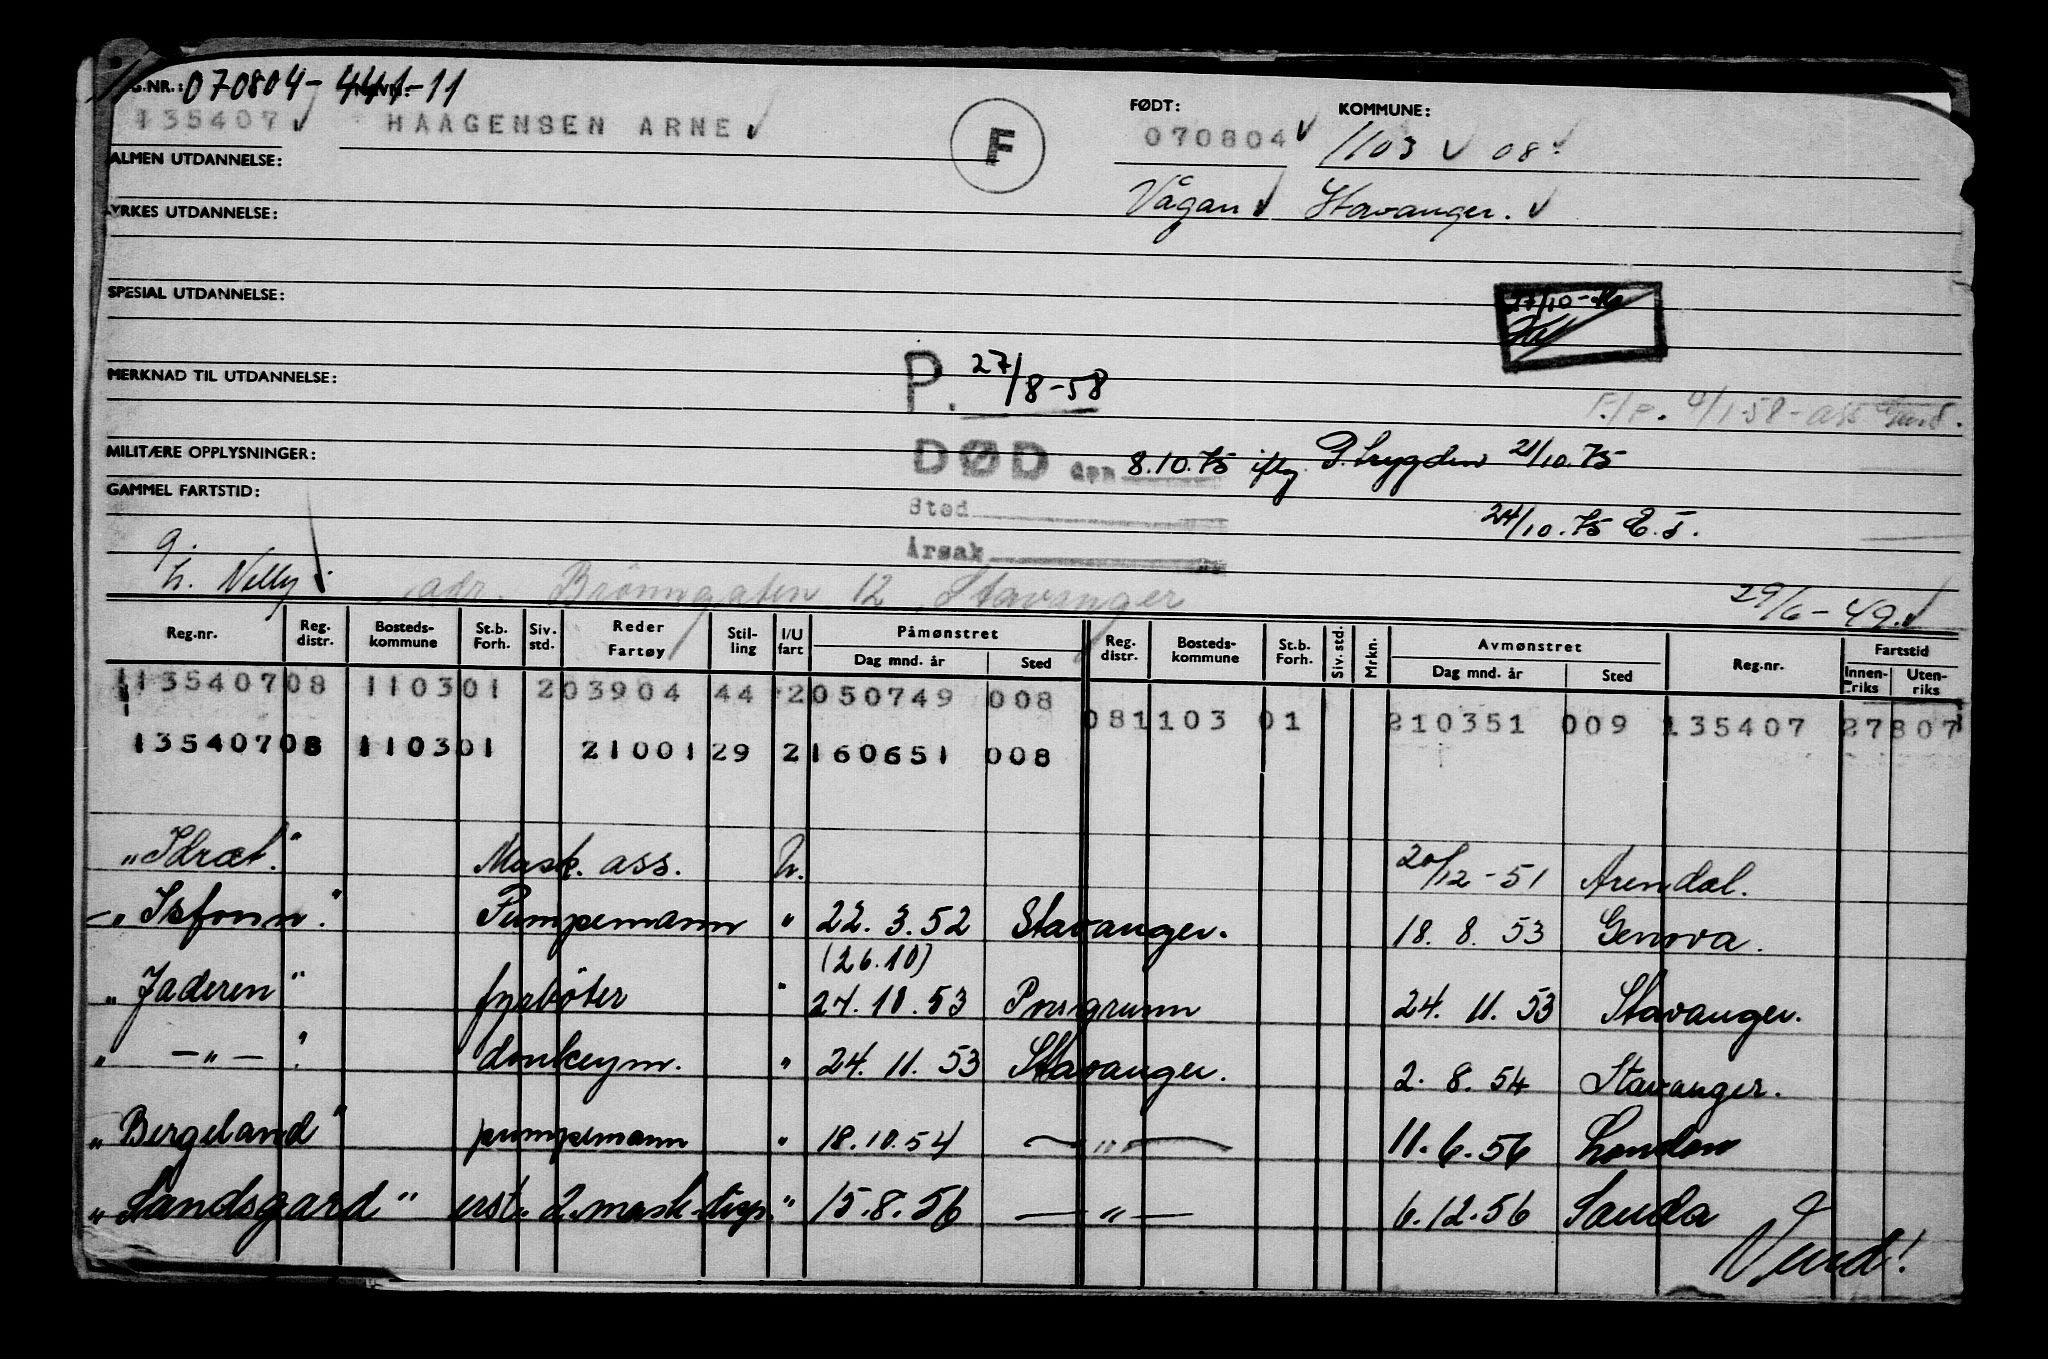 070804-441-11
G.NR.: NAVN: FØDT: KOMMUNE:
135407 HAAGENSEN ARNE F 070804 1103 08
ALMEN UTDANNELSE:
Vågan Stavanger.
YRKES UTDANNELSE:
SPESIAL UTDANNELSE:
27/10-
P. 27/8-58
MERKNAD TIL UTDANNELSE:
F./P. 1/1-58-ass
MILITÆRE OPPLYSNINGER:
DØD den 8.10.75 iflg. P.trygden 21/10.75
GAMMEL FARTSTID:
Sted
24/10.75 E.S.
Årsak
g.
h. Nelly adr. Brönngaten 12, Stavanger 29/6-49.
Reg.nr. Reg. distr. Bosteds-kommune St.b. Forh. Siv. std. Reder Fartøy Stil-ling I/U fart Påmønstret Dag mnd. år Sted Reg. distr. Bosteds-kommune St.b. Forh. Siv. std. Mrkn. Avmønstret Dag mnd. år Sted Reg.nr. Fartstid Innen-riks Uten-riks
135407 08 1103 01 203904 44 2 050749 008 08 1103 01 210351 009 135407 27807
135407 08 1103 01 21001 29 2 160651 008
"Idræt." Mask. ass. U. 20/12-51 Arendal.
-"Isfonn." Pumpemann " 22.3.52 Stavanger. 18.8.53 Genova.
(26.10)
"Jaderen" fyrböter " 24.10.53 Porsgrunn 24.11.53 Stavanger.
" -"- " donkeym. " 24.11.53 Stavanger. 2.8.54 Stavanger.
"Bergeland" pumpemann " 18.10.54 -"- 11.6.56 London
"Sandsgard" erst. 2.mask.disp. " 15.8.56 -"- 6.12.56 Sauda
Vend!